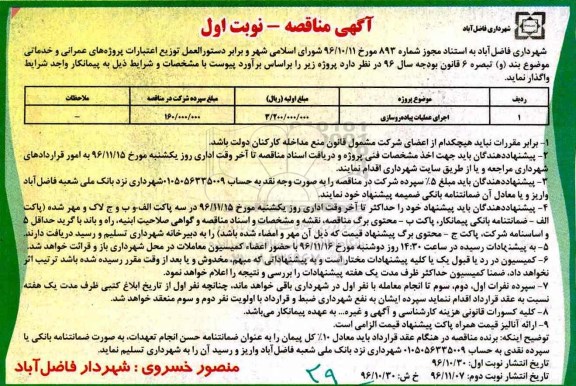 آگهی مناقصه - نوبت اول
شهرداری فاضل‌آباد
شهرداری فاضل‌آباد به استناد مجوز شماره ۸۹۳ مورخ ۹۶/۱۰/۱۱ شورای اسلامی شهر و برابر دستورالعمل توزیع اعتبارات پروژه‌های عمرانی و خدماتی
موضوع بند (و) تبصره ۶ قانون بودجه سال ۹۶ در نظر دارد پروژه زیر را براساس برآورد پیوست با مشخصات و شرایط ذیل به پیمانکار واجد شرایط
واگذار نماید.
ردیف موضوع پروژه مبلغ اولیه (ریال) مبلغ سپرده شرکت در مناقصه ملاحظات
۱ اجرای عملیات پیاده‌روسازی ۳/۲۰۰/۰۰۰/۰۰۰ ۱۶۰/۰۰۰/۰۰۰ –
۱- برابر مقررات نباید هیچکدام از اعضای شرکت مشمول قانون منع مداخله کارکنان دولت باشد.
۲- پیشنهاددهندگان باید جهت اخذ مشخصات فنی پروژه و دریافت اسناد مناقصه تا آخر وقت اداری روز یکشنبه مورخ ۹۶/۱۱/۱۵ به امور قراردادهای
شهرداری مراجعه و یا از طریق سایت شهرداری اقدام نمایند.
۳- پیشنهاددهندگان باید مبلغ ۵٪ سپرده شرکت در مناقصه را به صورت وجه نقد به حساب ۰۱۰۵۰۵۶۳۳۵۰۰۹ شهرداری نزد بانک ملی شعبه فاضل‌آباد
واریز و یا معادل آن ضمانتنامه بانکی ضمیمه پیشنهاد خود نمایند.
۴- پیشنهاددهندگان باید پیشنهاد خود را حداکثر تا آخر وقت اداری روز یکشنبه مورخ ۹۶/۱۱/۱۵ در سه پاکت الف و ب و ج لاک و مهر شده (پاکت
الف - ضمانتنامه بانکی پیمانکار، پاکت ب - محتوی برگ مناقصه، نقشه و مشخصات و اسناد مناقصه و گواهی صلاحیت ابنیه، راه و باند با گرید حداقل ۵
و اساسنامه شرکت، پاکت ج - محتوی برگ پیشنهاد قیمت که ذیل آن مهر و امضاء شده باشد) را به دبیرخانه شهرداری تسلیم و رسید دریافت دارند.
۵- به پیشنهادات رسیده در ساعت ۱۴:۳۰ روز دوشنبه مورخ ۹۶/۱۱/۱۶ با حضور اعضاء کمیسیون معاملات در محل شهرداری باز و قرائت خواهد شد.
۶- کمیسیون در رد یا قبول یک یا کلیه پیشنهادات مختار است و به پیشنهاداتی که مبهم، مخدوش و یا بعد از وقت مقرر رسیده شده باشد ترتیب اثر
نخواهد داد، ضمنا کمیسیون حداکثر ظرف مدت یک هفته پیشنهادات را بررسی و نتیجه را اعلام خواهد نمود.
۷- سپرده نفرات اول، دوم، سوم تا انجام معامله با نفر اول در شهرداری باقی خواهد ماند، چنانچه نفر اول از تاریخ ابلاغ کتبی ظرف مدت یک هفته
نسبت به عقد قرارداد اقدام ننماید سپرده ایشان به نفع شهرداری ضبط و قرارداد با اولویت نفر دوم و سوم منعقد خواهد شد.
۸- کلیه کسورات قانونی هزینه کارشناسی و آگهی و غیره... به عهده پیمانکار می‌باشد.
۹- ارائه آنالیز قیمت همراه پاکت پیشنهاد قیمت الزامی است.
توضیح اینکه: برنده مناقصه در هنگام عقد قرارداد باید معادل ۱۰٪ کل پیمان را به عنوان ضمانتنامه حسن انجام تعهدات، به صورت ضمانتنامه بانکی یا
سپرده نقدی به حساب ۰۱۰۵۰۵۶۳۳۵۰۰۹ شهرداری نزد بانک ملی شعبه فاضل‌آباد واریز و رسید آن را به شهرداری تسلیم نماید.
تاریخ انتشار نوبت اول: ۹۶/۱۰/۳۰
تاریخ انتشار نوبت دوم: ۹۶/۱۱/۰۷ خ ش: ۹۶/۱۰/۳۰
۲۹
منصور خسروی : شهردار فاضل‌آباد